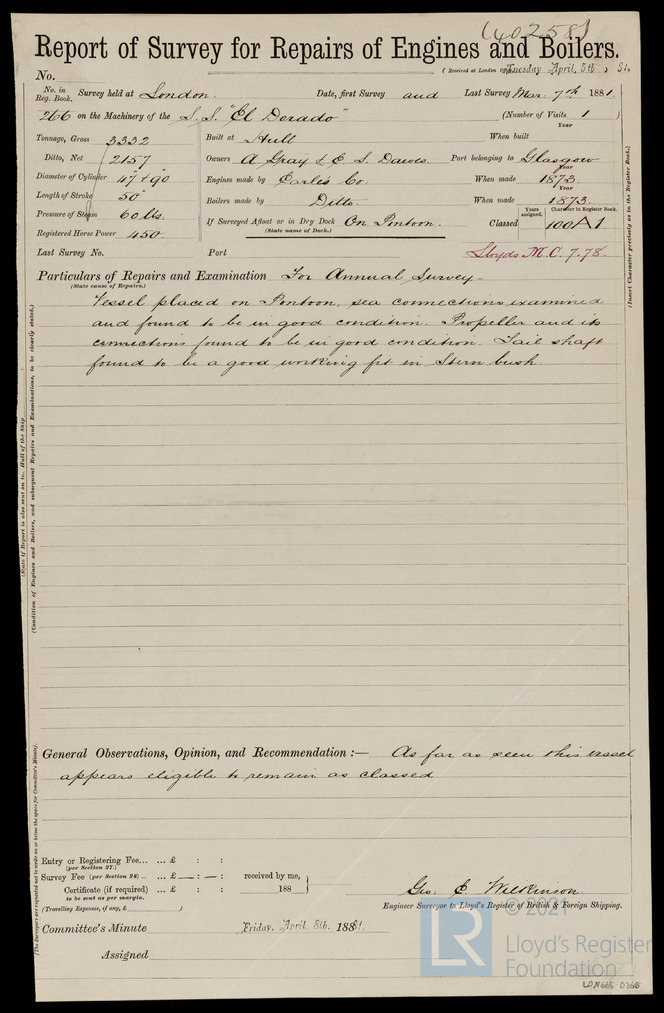 (40258)
Report of Survey for Repairs of Engines and Boilers.
(Received at London Office Tuesday April, 5th, 81.
No.
No. in Reg. Book. Survey held at London. Date, first Survey and Last Survey Mar. 7th 1881.
266 on the Machinery of the S.S. "El Dorado" (Number of Visits 1 )
Tonnage, Gross 3332 Built at Hull When built Year
Ditto, Net 2157 Owners A Gray & E. S. Dawes. Port belonging to Glasgow
Diameter of Cylinder 47 & 90 Engines made by Earle's Co. When made Year 1873
Length of Stroke 50" Boilers made by Ditto When made Year 1873
Pressure of Steam 60 lbs. If Surveyed Afloat or in Dry Dock On Pontoon. Classed Years assigned. Character in Register Book. 100 A1
Registered Horse Power 450 (State name of Dock.)
Last Survey No. Port Lloyds M.C. 7.78.
Particulars of Repairs and Examination For Annual Survey-
(State cause of Repairs.)
Vessel placed on Pontoon, sea connections examined
and found to be in good condition. Propeller and its
connections found to be in good condition. Tail shaft
found to be a good working fit in Stern bush
(State if Report is also sent on the Hull of the Ship
(Condition of Engines and Boilers, and subsequent Repairs and Examinations, to be clearly stated.)
(Insert Character precisely as in the Register Book.)
General Observations, Opinion, and Recommendation :— As far as seen this vessel
appears eligible to remain as classed
(The Surveyors are requested not to write on or below the space for Committee's Minute).
Entry or Registering Fee... ... £ : :
(per Section 27.)
Survey Fee (per Section 28) .. ... £ — : — : received by me,
Certificate (if required) ... £ : : 188
to be sent as per margin.
(Travelling Expenses, if any, £ )
Geo. E. Wilkinson
Engineer Surveyor to Lloyd's Register of British & Foreign Shipping.
Committee's Minute Friday, April, 8th, 1881.
Assigned
© 2021
LR
Lloyd's Register
Foundation
LDN665-0366